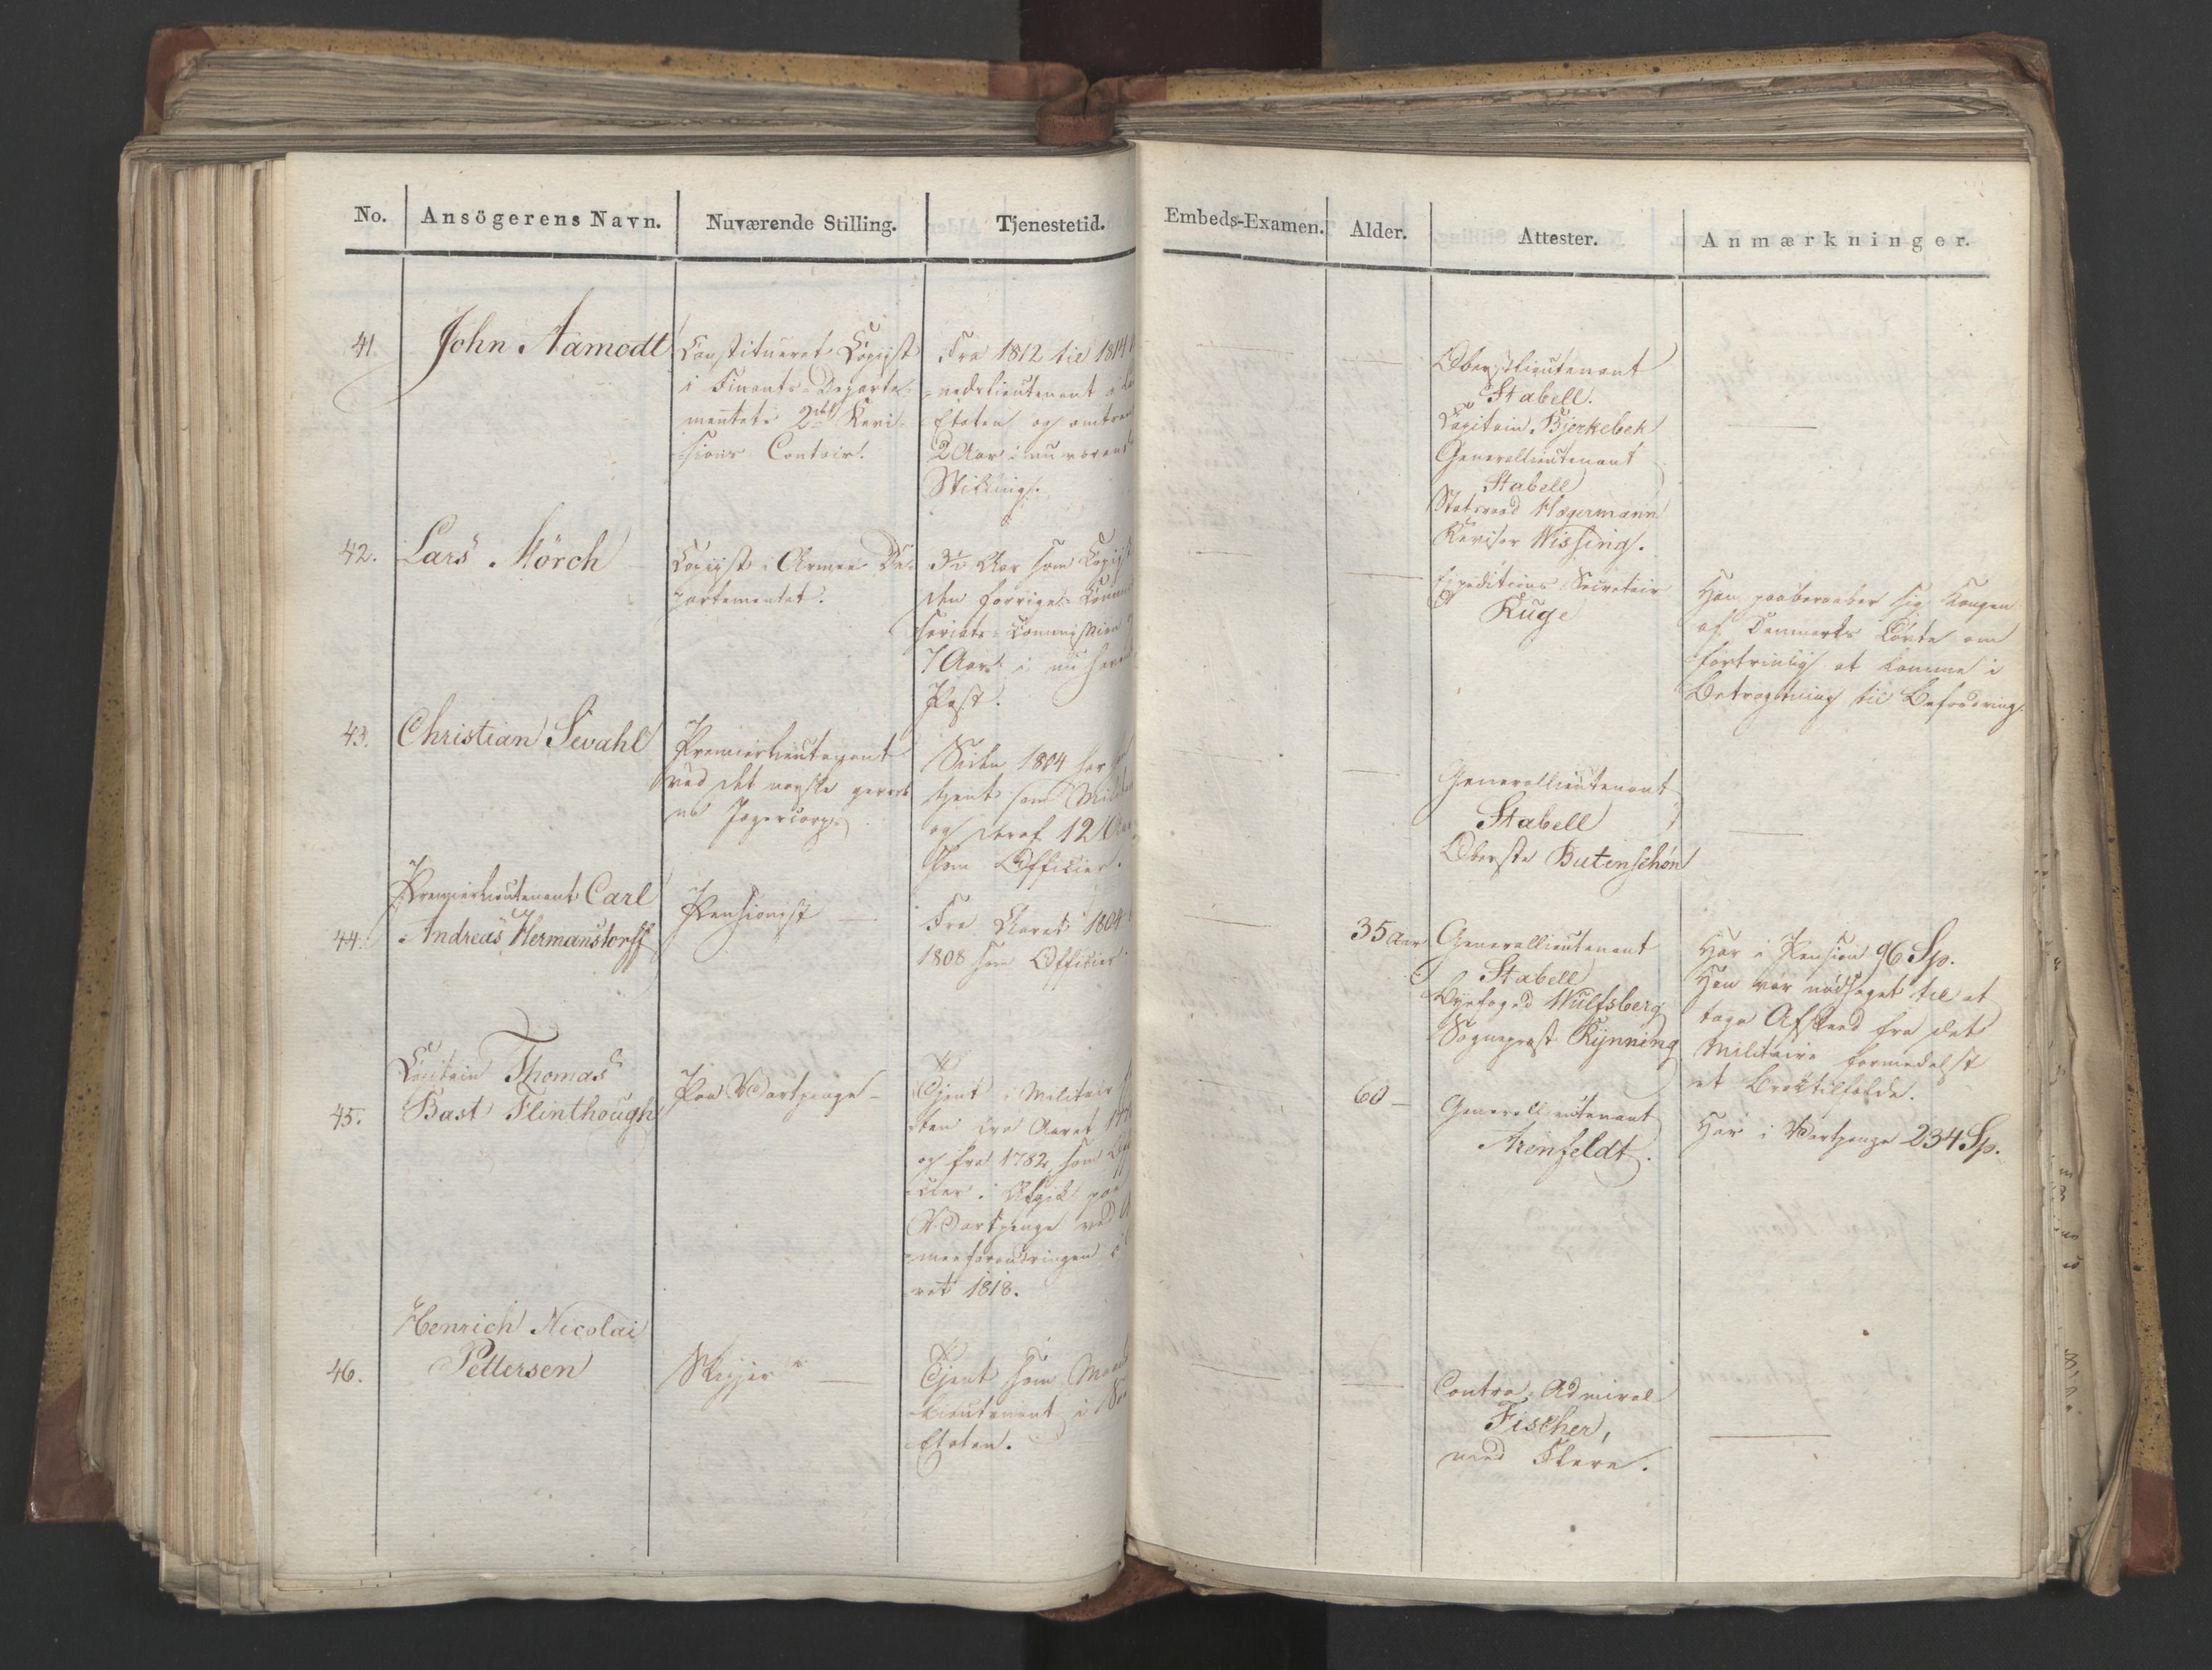 No. Ansögerens Navn. Nuværende Stilling. Tjenestetid. Embeds-Examen. Alder. Attester. Anmærkninger.
41. John Aamodt
Constitueret Copiist
i Finants-Departe-
mentets 2det Revi-
sions Contoir.
Fra 1812 til 1814
Etaten og omtren
2 Aar i nuværend
Stilling.
Oberstlieutenant
Stabell.
Capitain Bjerkebek
Generallieutenant
Stabell
Statsraad Hagermann
Revisor Wissing.
42. Lars Mörch
Copiist i Armee-De-
partementet.
3½ Aar som Copiist
den forrige
7 Aar i nu
Post.
Expeditions-Secretair
Ruge
Han paaberaaber sig Kongen
af Danmarks Löfte om
fortrinlig at komme i
Betragtning til Befordring.
43. Christian Sivahl
Premierlieutenant
ved det norske gevorb-
ne Jægercorps
Siden 1804 har
tjent som
og deraf 12 Aar
som Officier.
Generallieutenant
Stabell
Oberste Butenschön
44. Premierlieutenant Carl
Andreas Hermanstorff
Pensionist
Fra Aaret 1804
1808 som Officier
35 Aar
Generallieutenant
Stabell
Byefoged Wulfsberg
Sogneprest Rynning
Har i Pension 96 Sp.
Han var nødsaget til at
tage Afskeed fra det
Militaire formedelst
et Broktilfælde.
45. Capitain Thomas
Bast Flinthough
Paa Vartpenge
Tjent i Militair
ten fra Aaret
og fra 1782 som
cier. Afgik paa
Vartpenge ved
meeforandringen i
ret 1818.
60
Generallieutenant
Arenfeldt.
Har i Vartpenge 234 Sp.
46. Henrich Nicolai
Pettersen
Skipper
Tjent som
lieutenant i
Etaten.
Contra-Admiral
Fischer,
med Flere.